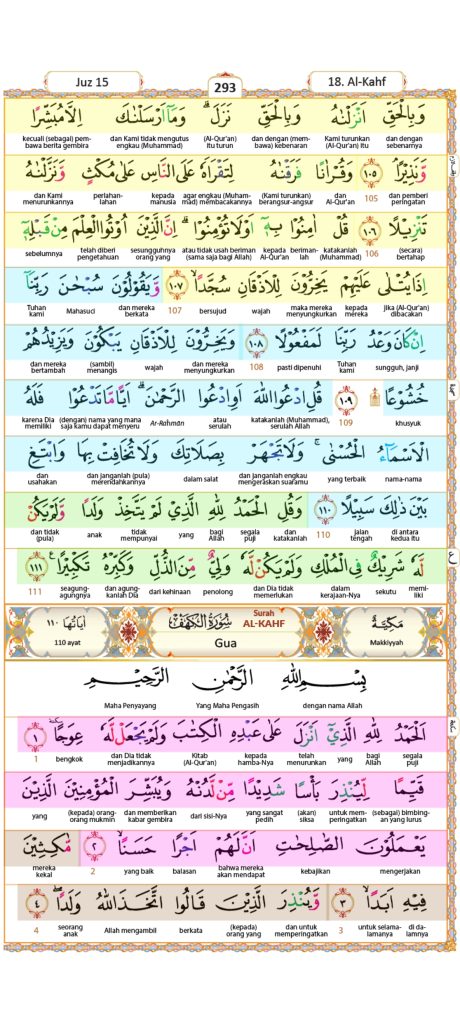 Juz 15
293
18. Al-Kahf
وَبِالْحَقِّ اَنْزَلْنٰهُ وَبِالْحَقِّ نَزَلَۗ وَمَآ اَرْسَلْنٰكَ اِلَّا مُبَشِّرًا
dan dengan sebenarnya Kami turunkan (Al-Qur'an) itu dan dengan (membawa) kebenaran (Al-Qur'an) itu turun dan Kami tidak mengutus engkau (Muhammad) kecuali (sebagai) pembawa berita gembira
وَّنَذِيْرًاۘ ١٠٥ وَقُرْاٰنًا فَرَقْنٰهُ لِتَقْرَاَهٗ عَلَى النَّاسِ عَلٰى مُكْثٍ وَّنَزَّلْنٰهُ
dan pemberi peringatan 105 dan Al-Qur'an (Kami turunkan) berangsur-angsur agar engkau (Muhammad) membacakannya kepada manusia perlahan-lahan dan Kami menurunkannya
تَنْزِيْلًا ١٠٦ قُلْ اٰمِنُوْا بِهٖٓ اَوْ لَا تُؤْمِنُوْاۗ اِنَّ الَّذِيْنَ اُوْتُوا الْعِلْمَ مِنْ قَبْلِهٖٓ
(secara) bertahap 106 katakanlah (Muhammad) berimanlah kepada (Al-Qur'an) atau tidak usah beriman (sama saja bagi Allah) sesungguhnya orang yang telah diberi pengetahuan sebelumnya
اِذَا يُتْلٰى عَلَيْهِمْ يَخِرُّوْنَ لِلْاَذْقَانِ سُجَّدًاۙ ١٠٧ وَّيَقُوْلُوْنَ سُبْحٰنَ رَبِّنَآ
jika (Al-Qur'an) dibacakan kepada mereka maka mereka menyungkurkan wajah bersujud 107 dan mereka berkata Mahasuci Tuhan kami
اِنْ كَانَ وَعْدُ رَبِّنَا لَمَفْعُوْلًا ١٠٨ وَيَخِرُّوْنَ لِلْاَذْقَانِ يَبْكُوْنَ وَيَزِيْدُهُمْ
sungguh, janji Tuhan kami pasti dipenuhi 108 dan mereka menyungkurkan wajah (sambil) menangis dan mereka bertambah
خُشُوْعًا ١٠٩ قُلِ ادْعُوا اللّٰهَ اَوِ ادْعُوا الرَّحْمٰنَۗ اَيًّا مَّا تَدْعُوْا فَلَهُ
khusyuk 109 katakanlah (Muhammad), serulah Allah atau serulah Ar-Raḥmān (dengan) nama yang mana saja kamu dapat menyeru karena Dia memiliki
الْاَسْمَاۤءُ الْحُسْنٰىۚ وَلَا تَجْهَرْ بِصَلَاتِكَ وَلَا تُخَافِتْ بِهَا وَابْتَغِ
nama-nama yang terbaik dan janganlah engkau mengeraskan suaramu dalam salat dan janganlah (pula) merendahkannya dan usahakan
بَيْنَ ذٰلِكَ سَبِيْلًا ١١٠ وَقُلِ الْحَمْدُ لِلّٰهِ الَّذِيْ لَمْ يَتَّخِذْ وَلَدًا وَّلَمْ يَكُنْ
di antara kedua itu jalan tengah 110 dan katakanlah segala puji bagi Allah yang tidak mempunyai anak dan tidak (pula)
لَّهٗ شَرِيْكٌ فِى الْمُلْكِ وَلَمْ يَكُنْ لَّهٗ وَلِيٌّ مِّنَ الذُّلِّ وَكَبِّرْهُ تَكْبِيْرًا ١١١
memiliki sekutu dalam kerajaan-Nya dan Dia tidak memerlukan penolong dari kehinaan dan agungkanlah Dia seagung-agungnya 111
مَكِّيَّة Makkiyyah
Surah AL-KAHF سُوْرَةُ الْكَهْفِ
Gua
اٰيَاتُهَا ١١٠ 110 ayat
بِسْمِ اللّٰهِ الرَّحْمٰنِ الرَّحِيْمِ
dengan nama Allah Yang Maha Pengasih Maha Penyayang
اَلْحَمْدُ لِلّٰهِ الَّذِيْٓ اَنْزَلَ عَلٰى عَبْدِهِ الْكِتٰبَ وَلَمْ يَجْعَلْ لَّهٗ عِوَجًاۜ ١
segala puji bagi Allah yang telah menurunkan kepada hamba-Nya Kitab (Al-Qur'an) dan Dia tidak menjadikannya bengkok 1
قَيِّمًا لِّيُنْذِرَ بَأْسًا شَدِيْدًا مِّنْ لَّدُنْهُ وَيُبَشِّرَ الْمُؤْمِنِيْنَ الَّذِيْنَ
(sebagai) bimbingan yang lurus untuk memperingatkan (akan) siksa yang sangat pedih dari sisi-Nya dan memberikan kabar gembira (kepada) orang-orang mukmin yang
يَعْمَلُوْنَ الصّٰلِحٰتِ اَنَّ لَهُمْ اَجْرًا حَسَنًاۙ ٢ مَّاكِثِيْنَ
mengerjakan kebajikan bahwa mereka akan mendapat balasan yang baik 2 mereka kekal
فِيْهِ اَبَدًاۙ ٣ وَّيُنْذِرَ الَّذِيْنَ قَالُوا اتَّخَذَ اللّٰهُ وَلَدًاۖ ٤
di dalamnya untuk selama-lamanya 3 dan untuk memperingatkan (kepada) orang yang berkata Allah mengambil seorang anak 4